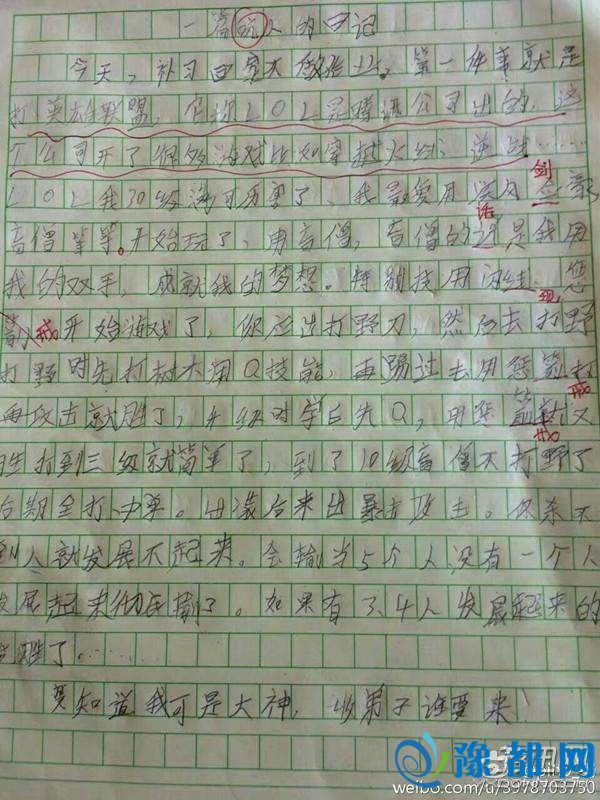 一篇玩人的日记
今天,补习回家天 第一件事就是
打英雄联盟,它称LOL是腾讯公司出的,这
个公司开了很多游戏比如穿越火线,逆战……
剑
LOL我30级满可厉害了,我最爱用
话
盲僧等等。开始玩了,用盲僧,盲僧的 是我用
我的双手,成就我的梦想。特别技用闪
现 您
戒
开始游戏了,你应出打野刀,然后去打野
打野时先打树木用Q技能,再踢过去用
戒
再攻击就胜了,升级时学后先Q,用
戒
胜打到三级就简单了,到了10级盲僧不打野了
后期全打中单。出 后来出暴击攻击。你杀不
到人就发展不起来。会输当5个人没有一个人
发展起来彻底输了。如果有3、4人发展起来的
胜了……
要知道我可是大神,收弟子谁要来!
豫都网
weibo.com/u/3978703750